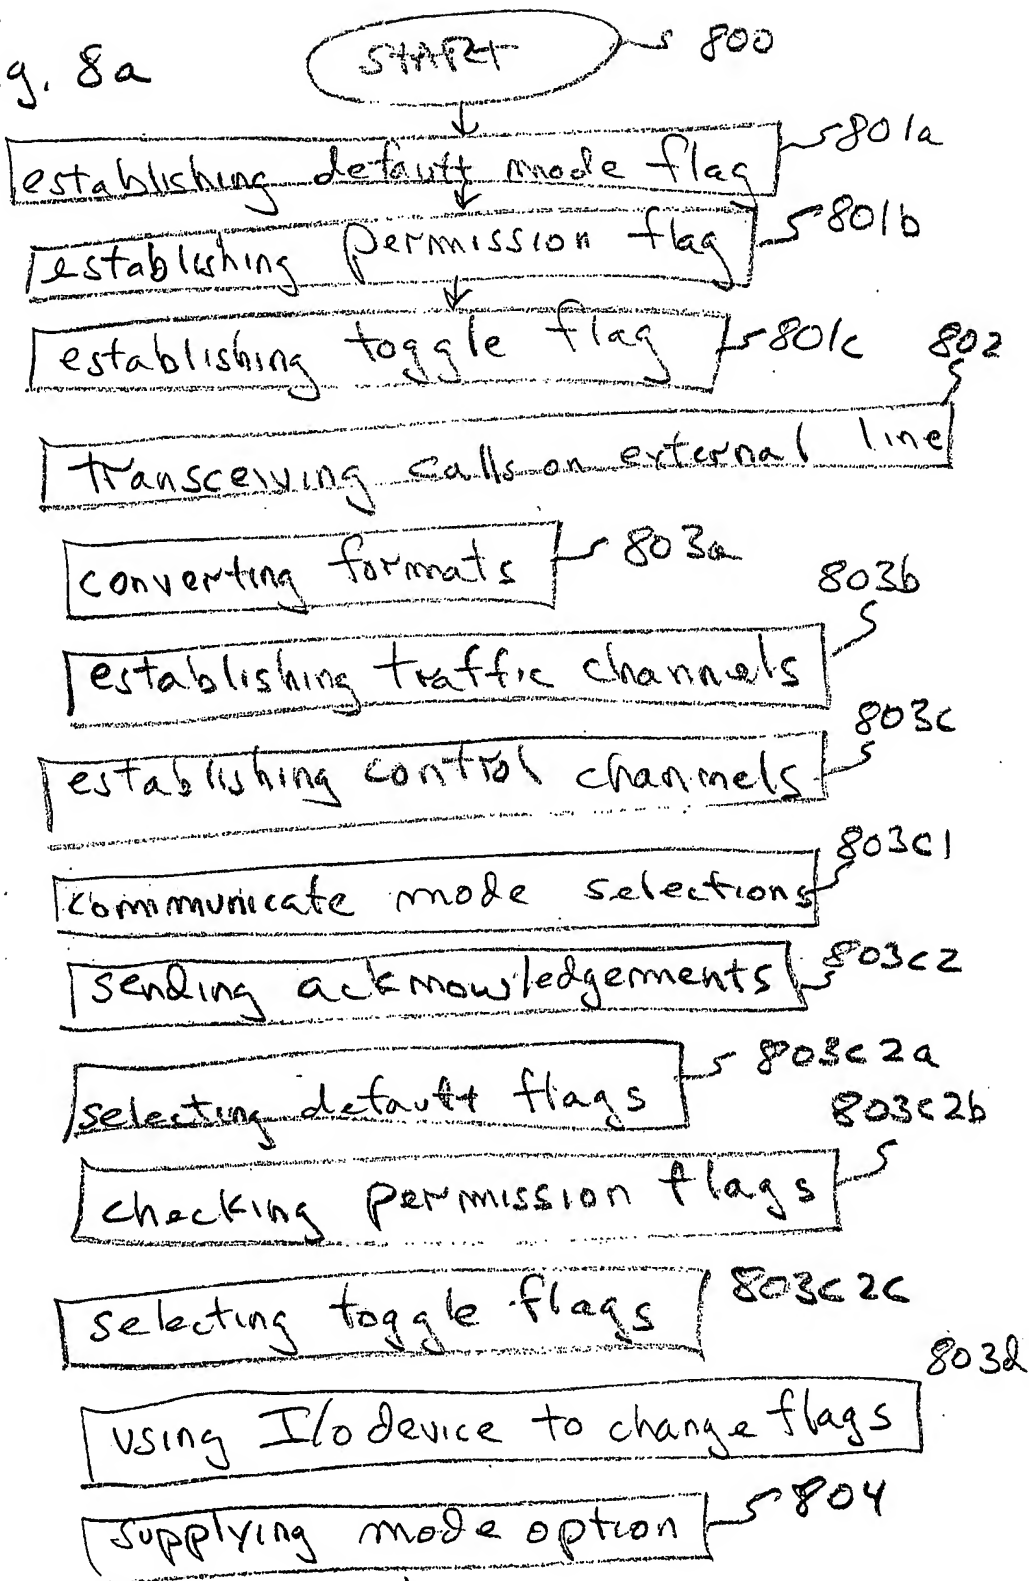 g. 8a
START 800
establishing default mode flag 801a
establishing permission flag 801b
establishing toggle flag 801c
802
transceiving calls on external line
converting formats 803a
803b
establishing traffic channels
803c
establishing control channels
803c1
communicate mode selections
sending acknowledgements 803c2
803c2a
selecting default flags
803c2b
checking permission flags
selecting toggle flags 803c2c
803d
using I/o device to change flags
supplying mode option 804